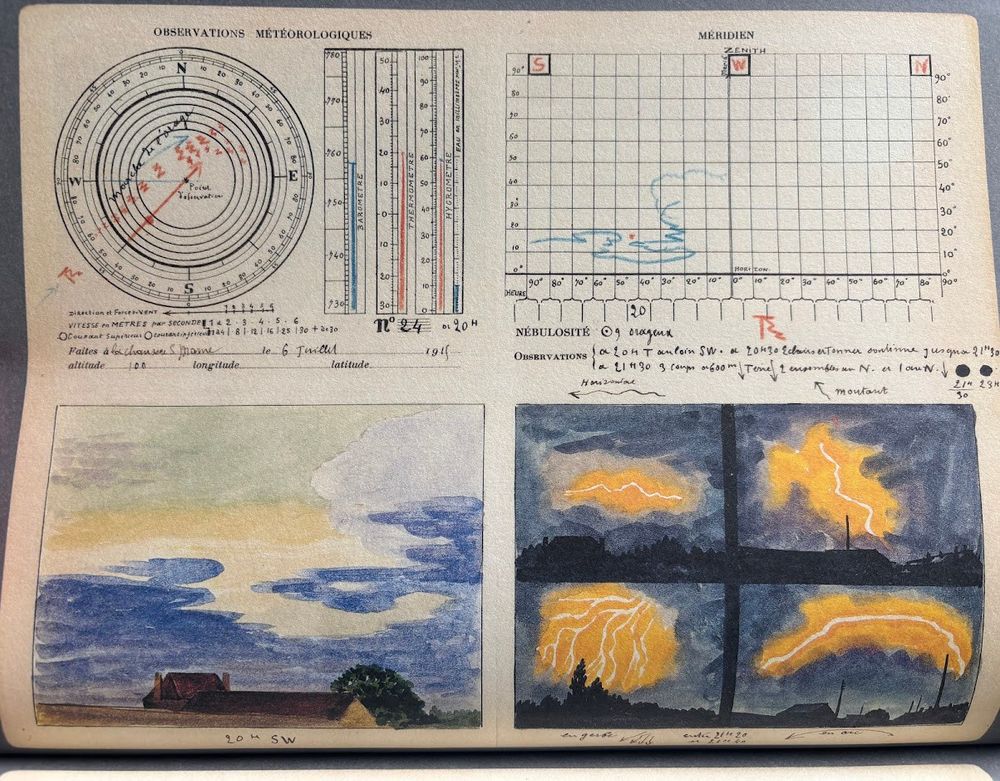 OBSERVATIONS MÉTÉOROLOGIQUES
N
W
E
S
Marche de l'orage
Point d'observation
780
770
760
750
740
730
BAROMÈTRE
50
40
30
20
10
0
10
20
30
THERMOMÈTRE
100
90
80
70
60
50
40
30
20
10
0
HYGROMÈTRE
EAU EN MILLIMÈTRES
DIRECTION et FORCE du VENT
VITESSE en MÈTRES PAR SECONDE 1 & 2 - 3 - 4 - 5 - 6
Courant Supérieur
nº 24 à 20 H
Faites à le 6 Juillet 191
altitude 100 longitude latitude
MÉRIDIEN
ZENITH
S
W
N
90° 90°
80 80°
70 70°
60 60°
50 50°
40 40°
30 30°
20 20°
10 10°
0° 0°
HORIZON
90° 80° 70° 60° 50° 40° 30° 20° 10° 0° 10° 20° 30° 40° 50° 60° 70° 80° 90°
HEURE
20
NÉBULOSITÉ 9 orageux
OBSERVATIONS à 20 H T au loin SW. à 20H30 Eclairs et Tonner continue jusqu'à 21H30
à 21H30 3 coups à 600m Terre 2 ensembles au N. et 1 au N.
21H 23H
30
Horizontal
montant
20 H SW
en gerbe
entre 21H20
en arc